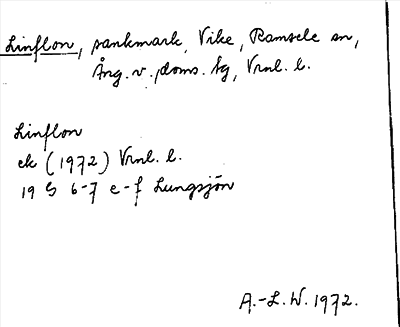 Linflon, sankmark, Vike, Ramsele sn,
Ång. v., doms. sg, Vrnl. l.
Linflon
ek (1972) Vrnl. l.
19 G 6-7 e-f Lungsjön
A.-L. W. 1972.